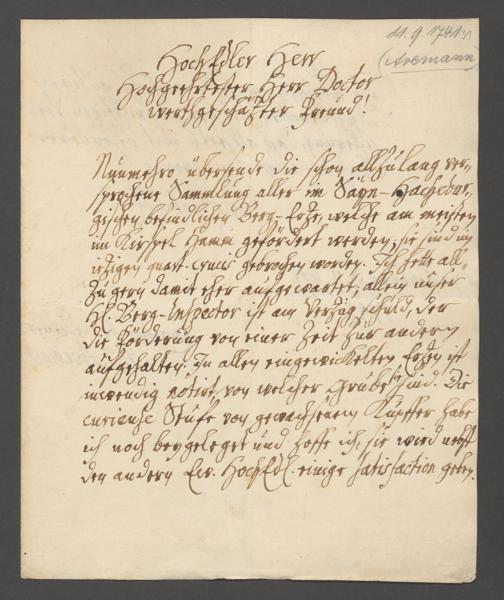 11. 9. 1741
(Avemann)
HochEdler Herr
Hochgeehrtester Herr Doctor
werthgeschätzter Freund!
Nunmehro übersende die schon allzulang ver-
sprochene Sammlung aller im Sayn-Hachebur-
gischen befindlichen Berg-Erze, welche am meisten
im Kirspel Hamm gefördert werden, sie sind im
itzigen quart. crucis gebrochen worden. Ich hette all-
zugern damit eher aufgewartet, allein unser
H. Berg-Inspector ist am Verzug schuld, der
die Förderung von einer Zeit zur andern
aufgehalten. In allen eingewickelten Erzen ist
inwendig notirt von welcher Grube sie sind. Die
curieuse Stufe von gewachsenem Kupffer habe
ich noch beygeleget und hoffe ich, sie wird nebst
den andern Ew. HochEdl. einige satisfaction geben.